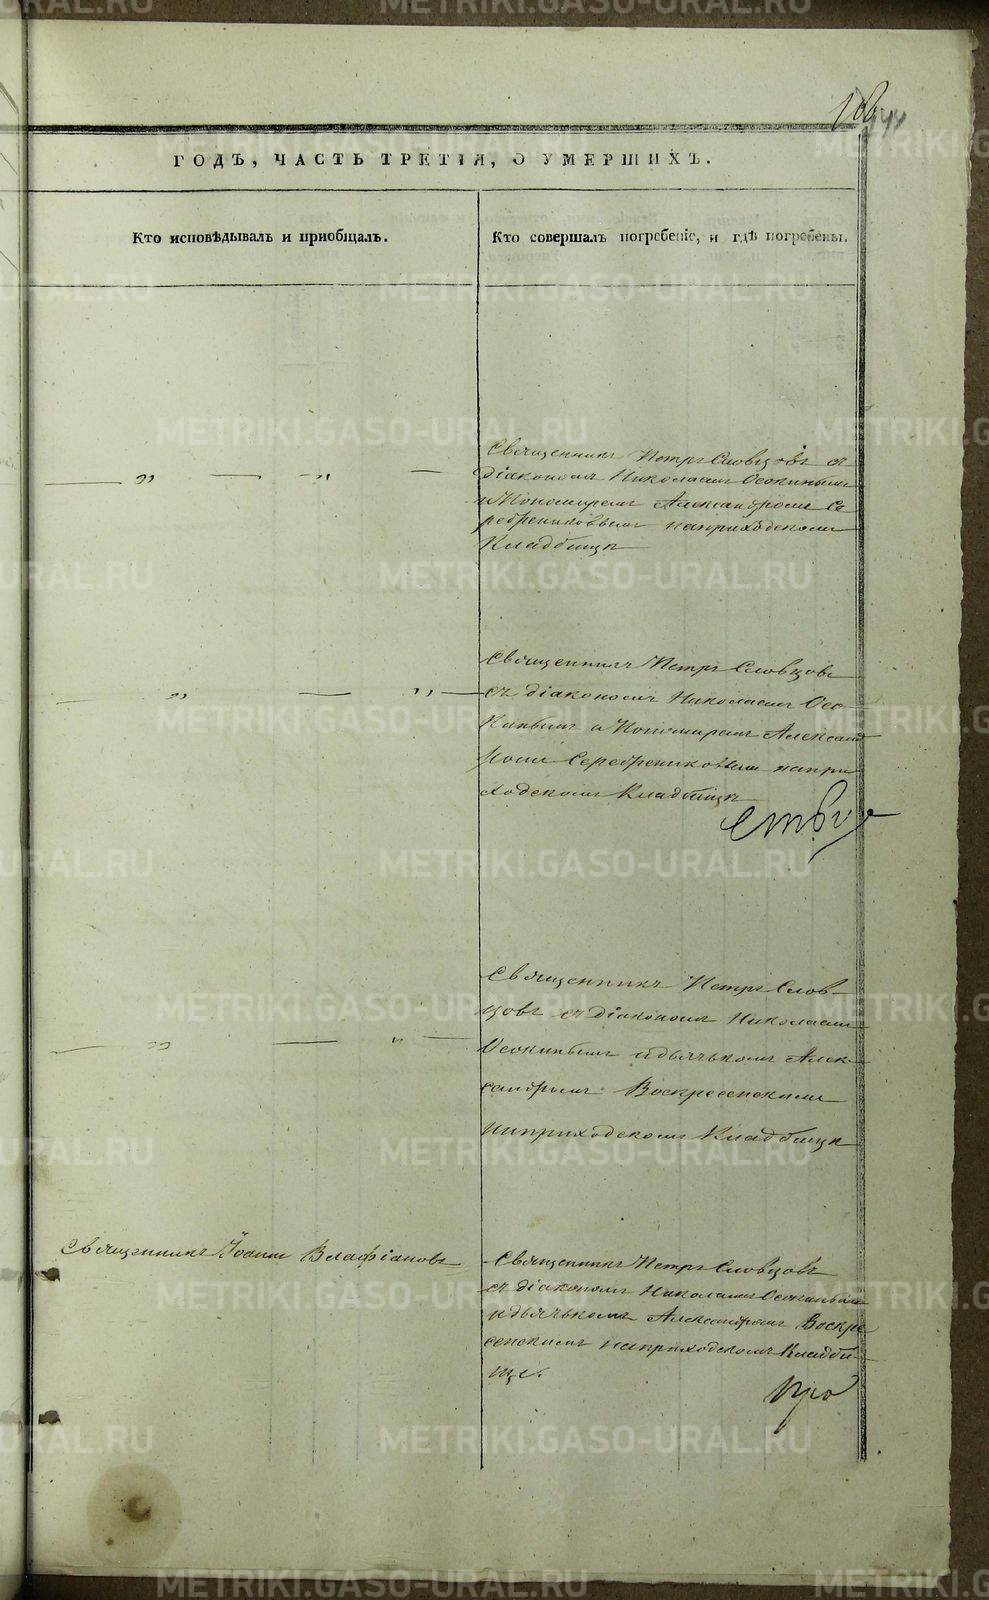 ГОДЪ, ЧАСТЬ ТРЕТІЯ, О УМЕРШИХЪ.
Кто исповѣдывалъ и пріобщалъ.
Кто совершалъ погребеніе, и гдѣ погребены.
Священникъ Петръ Словцовъ съ
діакономъ Николаемъ Осокинымъ
и Пономаремъ Александромъ Се
ребрениковымъ наприходскомъ
Кладбищѣ
Священникъ Петръ Словцовъ
съ діакономъ Николаемъ Осо-
кинымъ и Пономаремъ Александ
ромъ Серебрениковымъ напри
ходскомъ Кладбищѣ
Священникъ Петръ Слов-
цовъ съ діакономъ Николаемъ
Осокинымъ идьячькомъ Алек-
сандромъ Воскресенскимъ
наприходскомъ Кладбищѣ
Священникъ Іоаннъ Влафіановъ
Священникъ Петръ Словцовъ
съ діакономъ Николаемъ Осокинымъ
идьячькомъ Александромъ Воскре
сенскимъ наприходскомъ Кладби-
ще.
METRIKI.GASO-URAL.RU